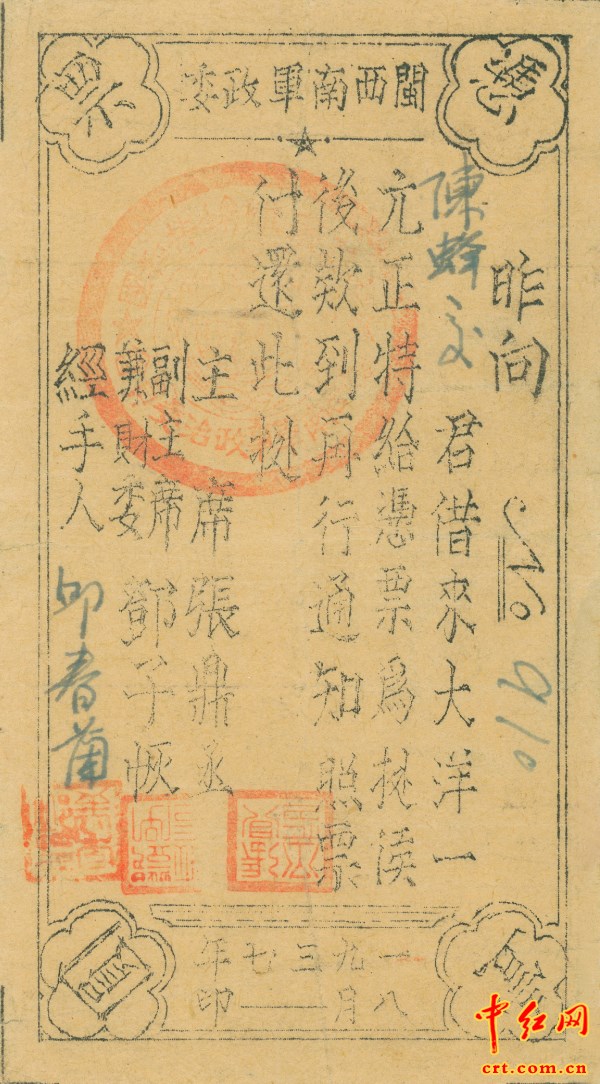 憑票
閩西南軍政委
昨向
No 910
陳蜂交
君借來大洋一
元正特給憑票爲㧢俟
後欵到再行通知照票
付還此㧢
主席張鼎丞
副主席
兼財委
鄧子恢
經手人
邱春蒲
壹圓
一九三七年
八月——印
中红网
crt.com.cn